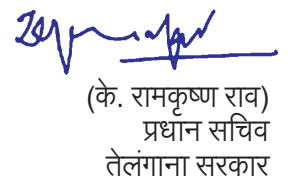 (के. रामकृष्ण राव)
प्रधान सचिव
तेलंगाना सरकार